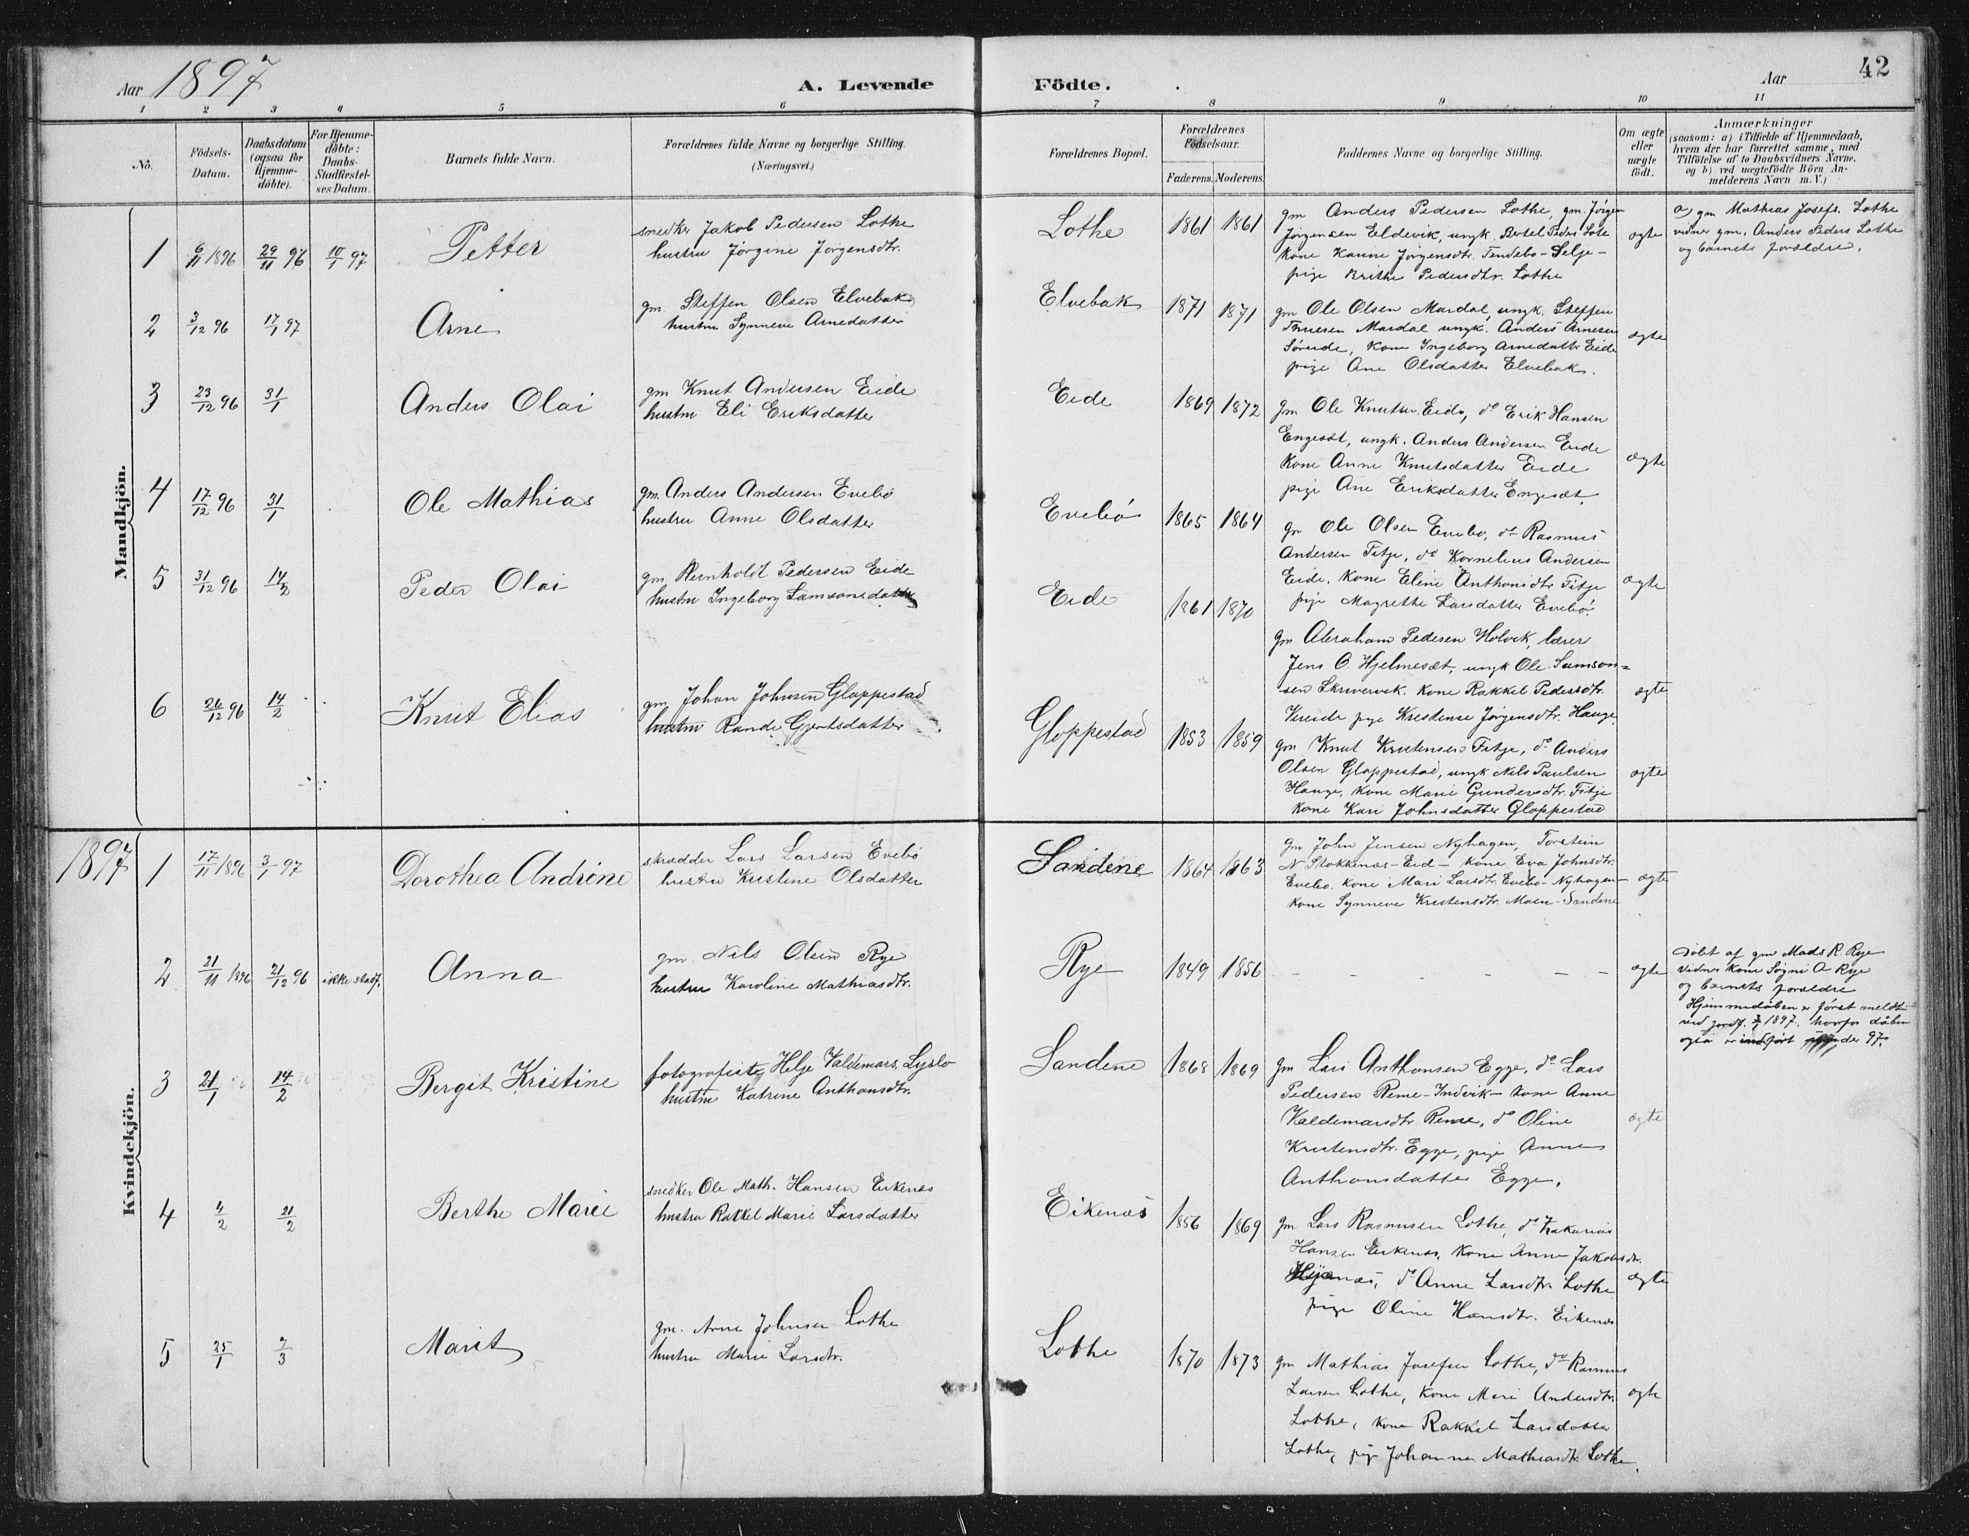 Aar 1897
A. Levende
Födte.
Aar
42
1 2 3 4 5 6 7 8 9 10 11
No.
Födsels-
Datum.
Daabsdatum
(ogsaa for
Hjemme-
döbte).
For Hjemme-
döbte:
Daabs-
Stadfæstel-
ses Datum.
Barnets fulde Navn.
Forældrenes fulde Navne og borgerlige Stilling.
(Næringsvei.)
Forældrenes Bopæl.
Forældrenes
Födselsaar.
Faderens. Moderens.
Faddernes Navne og borgerlige Stilling.
Om ægte
eller
uægte
födt.
Anmærkninger
(saasom: a) i Tilfælde af Hjemmedaab,
hvem der har forrettet samme, med
Tilföielse af to Daabsvidners Navne.
og b) ved uægtefödte Börn An-
melderens Navn m. V.)
Mandkjön.
1 6/11 1896 29/11 96 10/1 97
Petter
snedker Jakob Pedersen Lothe
hustru Jørgine Jørgensdtr.
Lothe
1861 1861
gm Anders Pedersen Lothe, gm. Jørgen
Jørgensen Eldevik, ungk. Bertel Peders Lote
kone Kanne Jørgensdtr. Tendebø - Selje -
pige Brithe Pedersdtr. Lothe
ægte
a) gm Mathias Josefs. Lothe
vidner gm. Anders Peders Lothe
og barnets forældre.
2 3/12 96 17/1 97
Arne
gm. Steffen Olsen Elvebak
hustru Synneve Arnedatter
Elvebak
1871 1871
gm Ole Olsen Mardal, ungk. Steffen
Mardal ungk. Anders Arnesen
Søreide, kone Ingeborg Arnedatter Eide
pige Ane Olsdatter Elvebak.
ægte
3 23/12 96 31/1
Anders Olai
gm Knut Andersen Eide
hustru Eli Eriksdatter
Eide
1869 1872
gm Ole Knutsen Eide, do Erik Hansen
Engesæt, ungk. Anders Andersen Eide
kone Anne Knutsdatter Eide
pige Ane Eriksdatter Engesæt
ægte
4 17/12 96 31/1
Ole Mathias
gm Anders Andersen Evebø
hustru Anne Olsdatter
Evebø
1865 1864
gm Ole Olsen Evebø, do Rasmus
Andersen Fitje, do Kornelius Andersen
Eide, kone Eline Anthonidtr Fitje
pige Magrethe Larsdatter Evebø.
ægte
5 31/12 96 14/2
Peder Olai
gm Bernholdt Pedersen Eide
hustru Ingeborg Samsonsdatter
Eide
1861 1870
gm Abraham Pedersen Holvik, lærer
Jens O. Hjelmesæt, ungk Ole Samson-
sen Skrivervik. kone Rakkel Pedersdtr.
Vereide pige Kristense Jørgensdtr. Hauge
ægte
6 26/12 96 14/2
Knut Elias
gm Johan Johnsen Gloppestad
hustru Rande Gjertsdatter
Gloppestad
1853 1859
gm Knut Kristensen Fitje, do Anders
Olsen Gloppestad, ungk Nils Paulsen
Hauge, kone Marie Gundersdtr. Fitje
kone Kari Johnsdatter Gloppestad
ægte
1897
Kvindekjön.
1 17/11 1896 3/1 97
Dorothea Andrine
skrædder Lars Larsen Evebø
hustru Kristine Olsdatter
Sandene
1864 1863
gm John Jensen Nyhagen, Torstein
N Stokkenæs - Eid - kone Eva Johnsdtr.
Evebø. kone Mari Larsdtr. Evebø - Nyhagen -
kone Synneve Kristensdtr. Moen - Sandene
ægte
2 21/11 1896 21/12 96 ikke stadf.
Anna
gm Nils Olsen Rye
hustru Karoline Mathiasdtr.
Rye
1849 1856
- - - - - -
ægte
Døbt af gm Mads R. Rye
Vidner kone Søgni A Rye
og barnets forældre
Hjemmedåben er først meldt
ved 1897. hvorfor dåben
også er indført under 97.
3 21/1 14/2
Bergit Kristine
fotografist Helje Valdemars. Lyslo
hustru Katrine Anthonsdtr.
Sandene
1868 1869
gm Lars Anthonsen Egge, do Lars
Pedersen Reme - Indvik - kone Anne
Valdemarsdtr. Reme, do Oline
Kristensdtr. Egge, pige Anne
Anthonsdatter Egge.
ægte
4 4/2 21/2
Berthe Marie
snedker Ole Math. Hansen Eikenæs
hustru Rakkel Marie Larsdatter
Eikenæs
1856 1869
gm Lars Rasmusen Lothe, do Zakarias
Hansen Eikenæs, kone Anne Jakobsdtr.
do Anne Larsdtr. Lothe
pige Oline Hansdtr. Eikenæs
ægte
5 25/1 7/3
Marit
gm. Arne Johnsen Lothe
hustru Marie Larsdtr.
Lothe
1870 1873
gm Mathias Josefsen Lothe, do Rasmus
Larsen Lothe, kone Mari Andersdtr.
Lothe, kone Rakkel Larsdatter
Lothe, pige Johanna Mathiasdtr. Lothe.
ægte